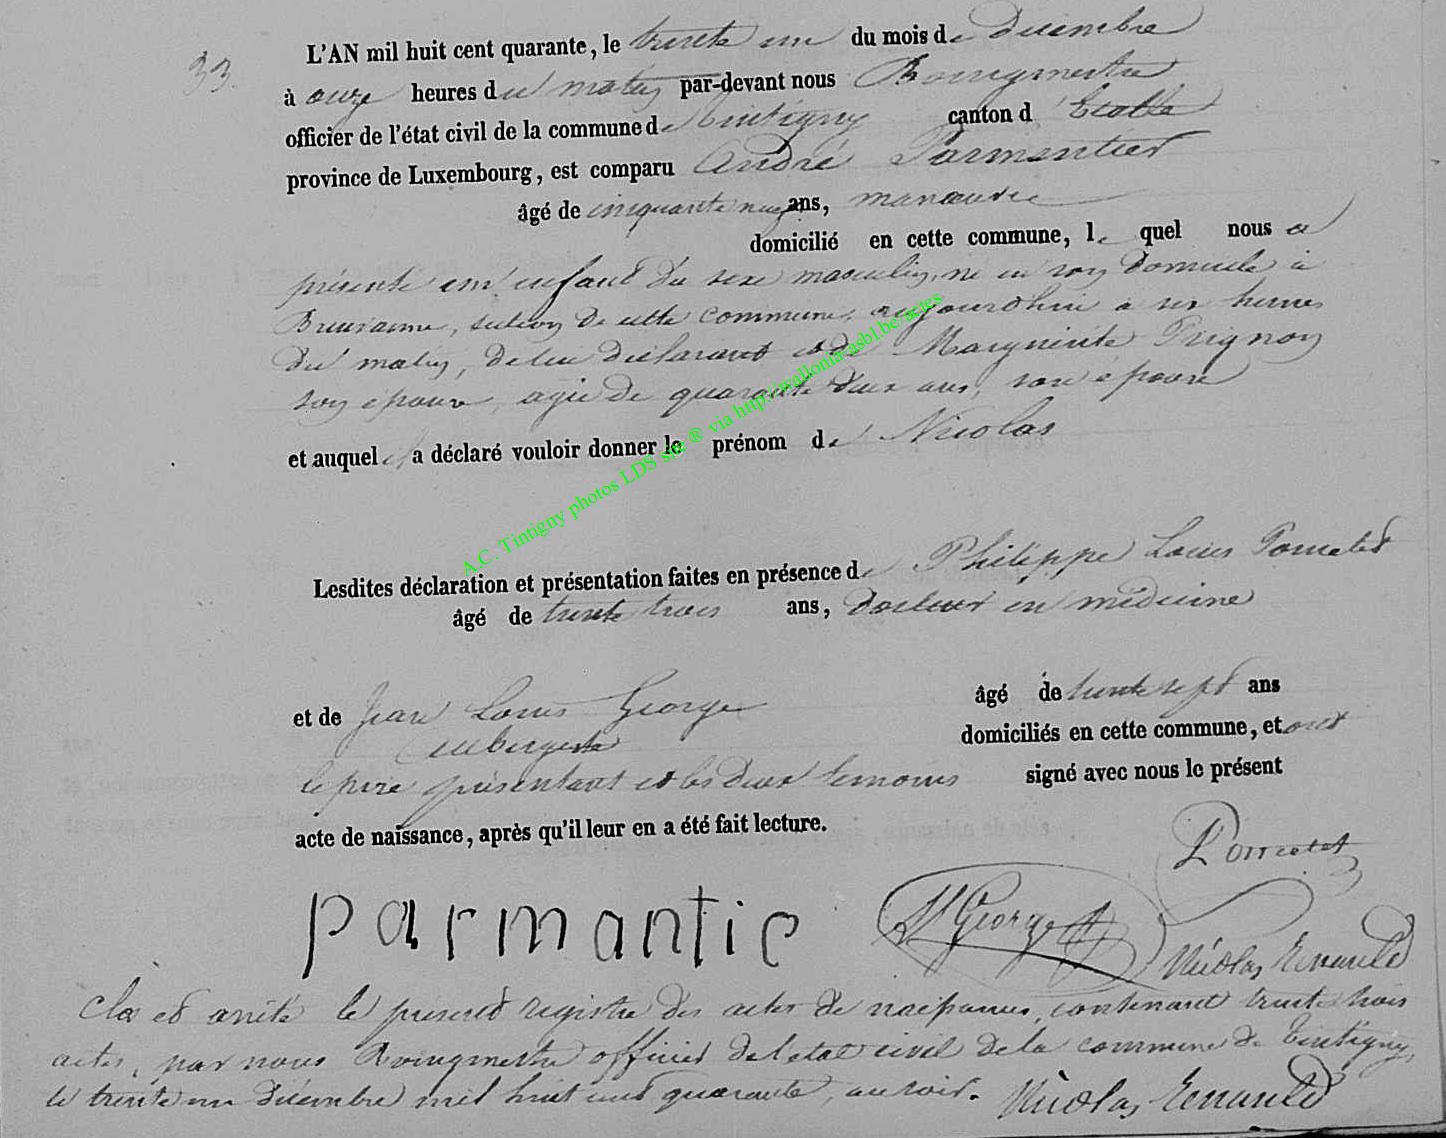 33.
L'AN mil huit cent quarante, le trente un du mois de Décembre
à onze heures du matin par-devant nous Bourgmestre
officier de l'état civil de la commune de Tintigny canton d'Etalle
province de Luxembourg, est comparu André Parmentier
âgé de cinquante neuf ans, manœuvre
domicilié en cette commune, lequel nous a
présenté un enfant du sexe masculin, né en son domicile à
Breuvanne, section de cette commune, aujourdhui à six heures
du matin, de lui déclarant et de Marguerite Prignon
son épouse, agée de quarante deux ans, son épouse
et auquel il a déclaré vouloir donner le prénom de Nicolas
Lesdites déclaration et présentation faites en présence de Philippe Louis
âgé de trente trois ans, docteur en médecine
et de Jean Louis George âgé de trente sept ans
aubergiste domiciliés en cette commune, et ont
le père présentant et les deux témoins signé avec nous le présent
acte de naissance, après qu'il leur en a été fait lecture.
parmantie George Nicolas
Clos et arrêté le présent registre des actes de naissances, contenant trente trois
actes, par nous Bourgmestre officier de l'état civil de la commune de Tintigny,
le trente un Décembre mil huit cent quarante, au soir. Nicolas
A.C. Tintigny photos LDS site ® via http://wallonia-asbl.be/actes